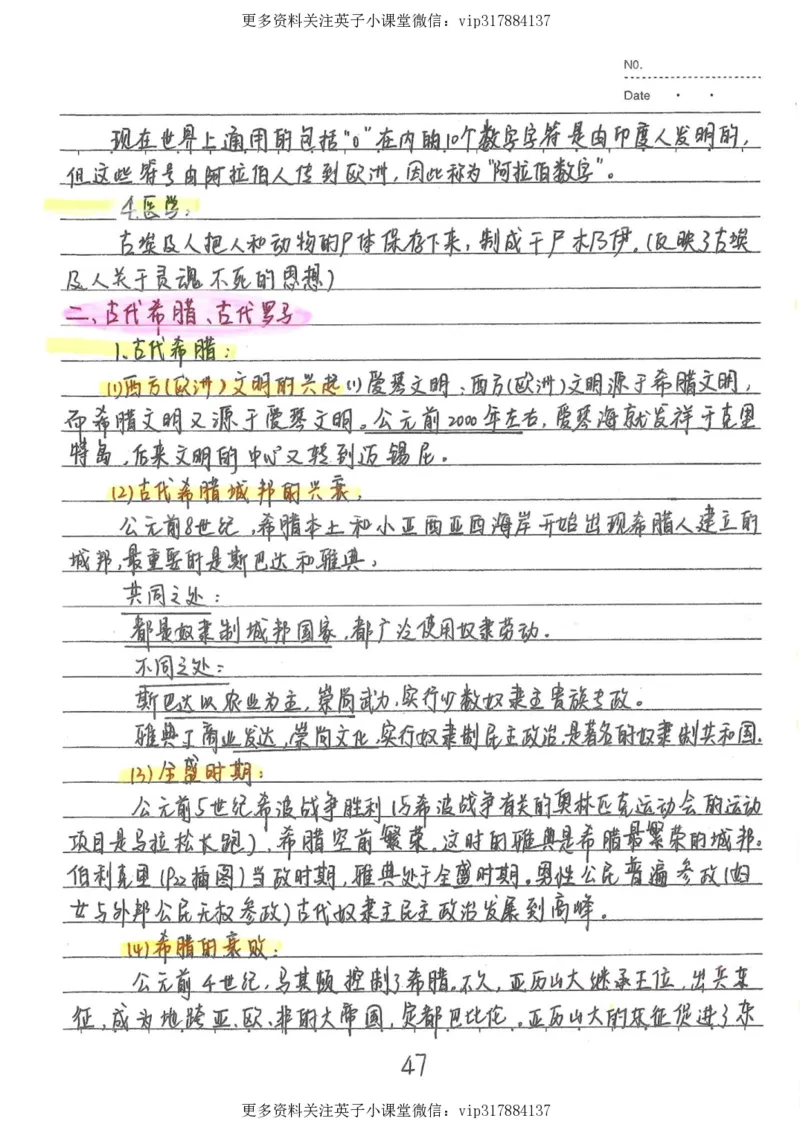 更多资料关注英子小课堂微信：vip317884137
NO.
Date
现在世界上通用的包括"0"在内的10个数字字符是由印度人发明的，
但这些符号由阿拉伯人传到欧洲，因此称为"阿拉伯数字"。
4.医学：
古埃及人把人和动物的尸体保存下来，制成干尸木乃伊。(反映了古埃
及人关于灵魂不死的思想)
二、古代希腊、古代罗马
1.古代希腊：
(1)西方(欧洲)文明的兴起(1)爱琴文明：西方(欧洲)文明源于希腊文明，
而希腊文明又源于爱琴文明。公元前2000年左右，爱琴海就发祥于克里
特岛，后来文明的中心又转到迈锡尼。
(2)古代希腊城邦的兴衰，
公元前8世纪，希腊本土和小亚西亚西海岸开始出现希腊人建立的
城邦，最重要的是斯巴达和雅典，
共同之处：
都是奴隶制城邦国家，都广泛使用奴隶劳动。
不同之处：
斯巴达以农业为主，崇尚武力，实行少数奴隶主贵族专政。
雅典工商业发达，崇尚文化，实行奴隶制民主政治，是著名的奴隶制共和国.
(3)全盛时期：
公元前5世纪希波战争胜利(与希波战争有关的奥林匹克运动会的运动
项目是马拉松长跑)，希腊空前繁荣。这时的雅典是希腊最繁荣的城邦。
伯利克里(P22插图)当政时期，雅典处于全盛时期。男性公民普遍参政(妇
女与外邦公民无权参政)古代奴隶主民主政治发展到高峰。
(4)希腊的衰败：
公元前4世纪，马其顿控制了希腊。不久，亚历山大继承王位，出兵东
征，成为地跨亚、欧、非的大帝国，定都巴比伦。亚历山大的东征促进了东
47
更多资料关注英子小课堂微信：vip317884137